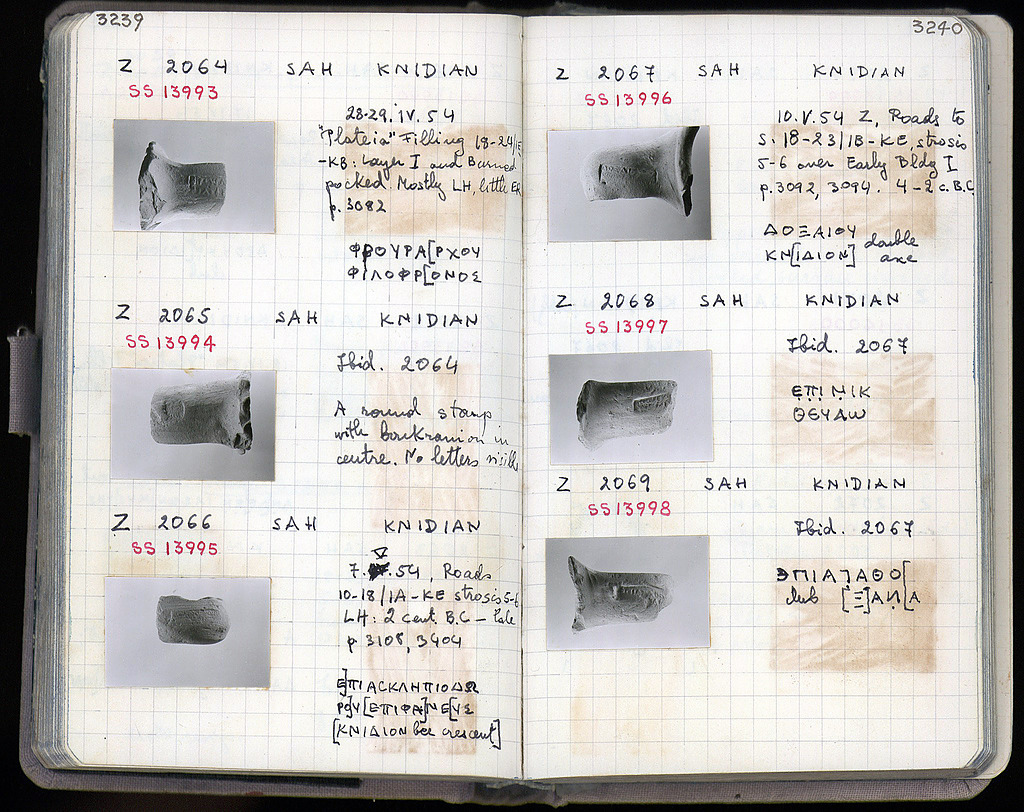 3239
Z 2064 SAH KNIDIAN
SS 13993
28-29.IV.54
"Plateia" Filling 18-24/IE
-KB: Layer I and Burned
pocked. Mostly LH, little ER
p. 3082
ΦΡΟΥΡΑ[ΡΧΟΥ
ΦΙΛΟΦΡ[ΟΝΟΣ
Z 2065 SAH KNIDIAN
SS 13994
Ibid. 2064
A round stamp
with boukranion in
centre. No letters visible
Z 2066 SAH KNIDIAN
SS 13995
V
7. .54, Roads
10-18/IA-KE strosis 5-6
LH: 2 cent. B.C.
p 3108, 3404
Ε]ΠΙΑΣΚΛΗΠΙΟΔΩ
ΡΟ]Υ [ΕΠΙΦΑ]ΝΕ[ΥΣ
[ΚΝΙΔΙΟΝ bee crescent]
3240
Z 2067 SAH KNIDIAN
SS 13996
10.V.54 Z, Roads to
S. 18-23/IB-KE, strosis
5-6 over Early Bldg I
p.3092, 3094. 4-2 c. B.C.
ΔΟΞΑΙΟΥ
ΚΝ[ΙΔΙΟΝ] double
axe
Z 2068 SAH KNIDIAN
SS 13997
Ibid. 2067
ΕΠΙ ΝΙΚ
ΘΕΥΔΩ
Z 2069 SAH KNIDIAN
SS 13998
Ibid. 2067
ΕΠΙΑΓΑΘΟ[
club [Ξ]ΑΝ[Α